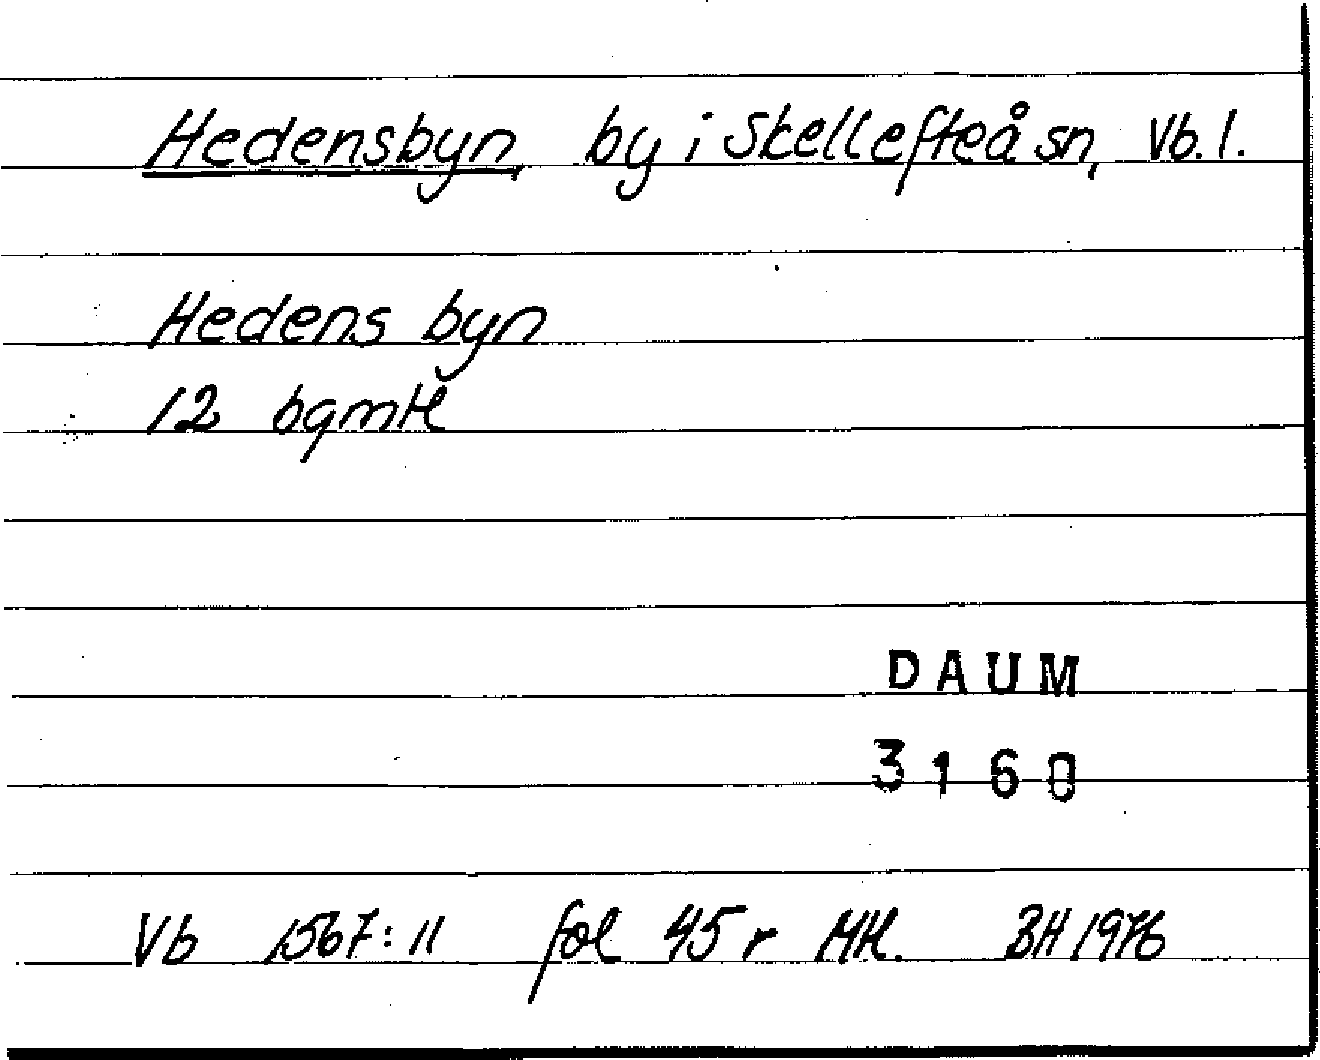 Hedensbyn, by i Skellefteå sn, Vb. l.
Hedens byn
12 bgmH
DAUM
3160
Vb 1567:11 fol 45 r MH. BH 1976